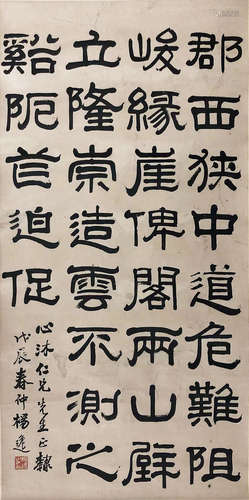 郡西狭中道危難阻
峻緣崖俾閣兩山壁
立隆崇造雲不測之
谿阨芒迫促
心沐仁兄先生正隸
戊辰春仲楊逸